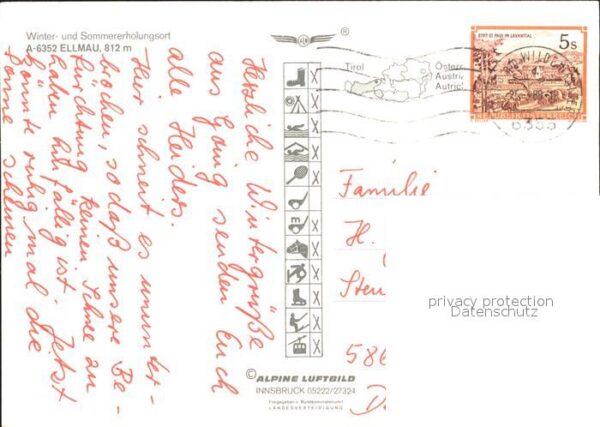 Winter- und Sommererholungsort
A-6352 ELLMAU, 812 m
Herzliche Wintergrüße
aus Going senden Euch
alle Heiders.
Hier schneit es ununter-
brochen, so daß unsere Be-
fürchtung keinen Schnee zu
haben hinfällig ist. Jetzt
könnte ruhig mal die
Sonne scheinen
®
Tirol
Österr
Austria
Autric
STIFT ST. PAUL IM LAVANTTAL
5 S
REPUBLIK ÖSTERREICH
Familie
H.
Sten
586
D
privacy protection
Datenschutz
© ALPINE LUFTBILD
INNSBRUCK 05222/27324
Freigegeben v. Bundesministerium f.
LANDESVERTEIDIGUNG